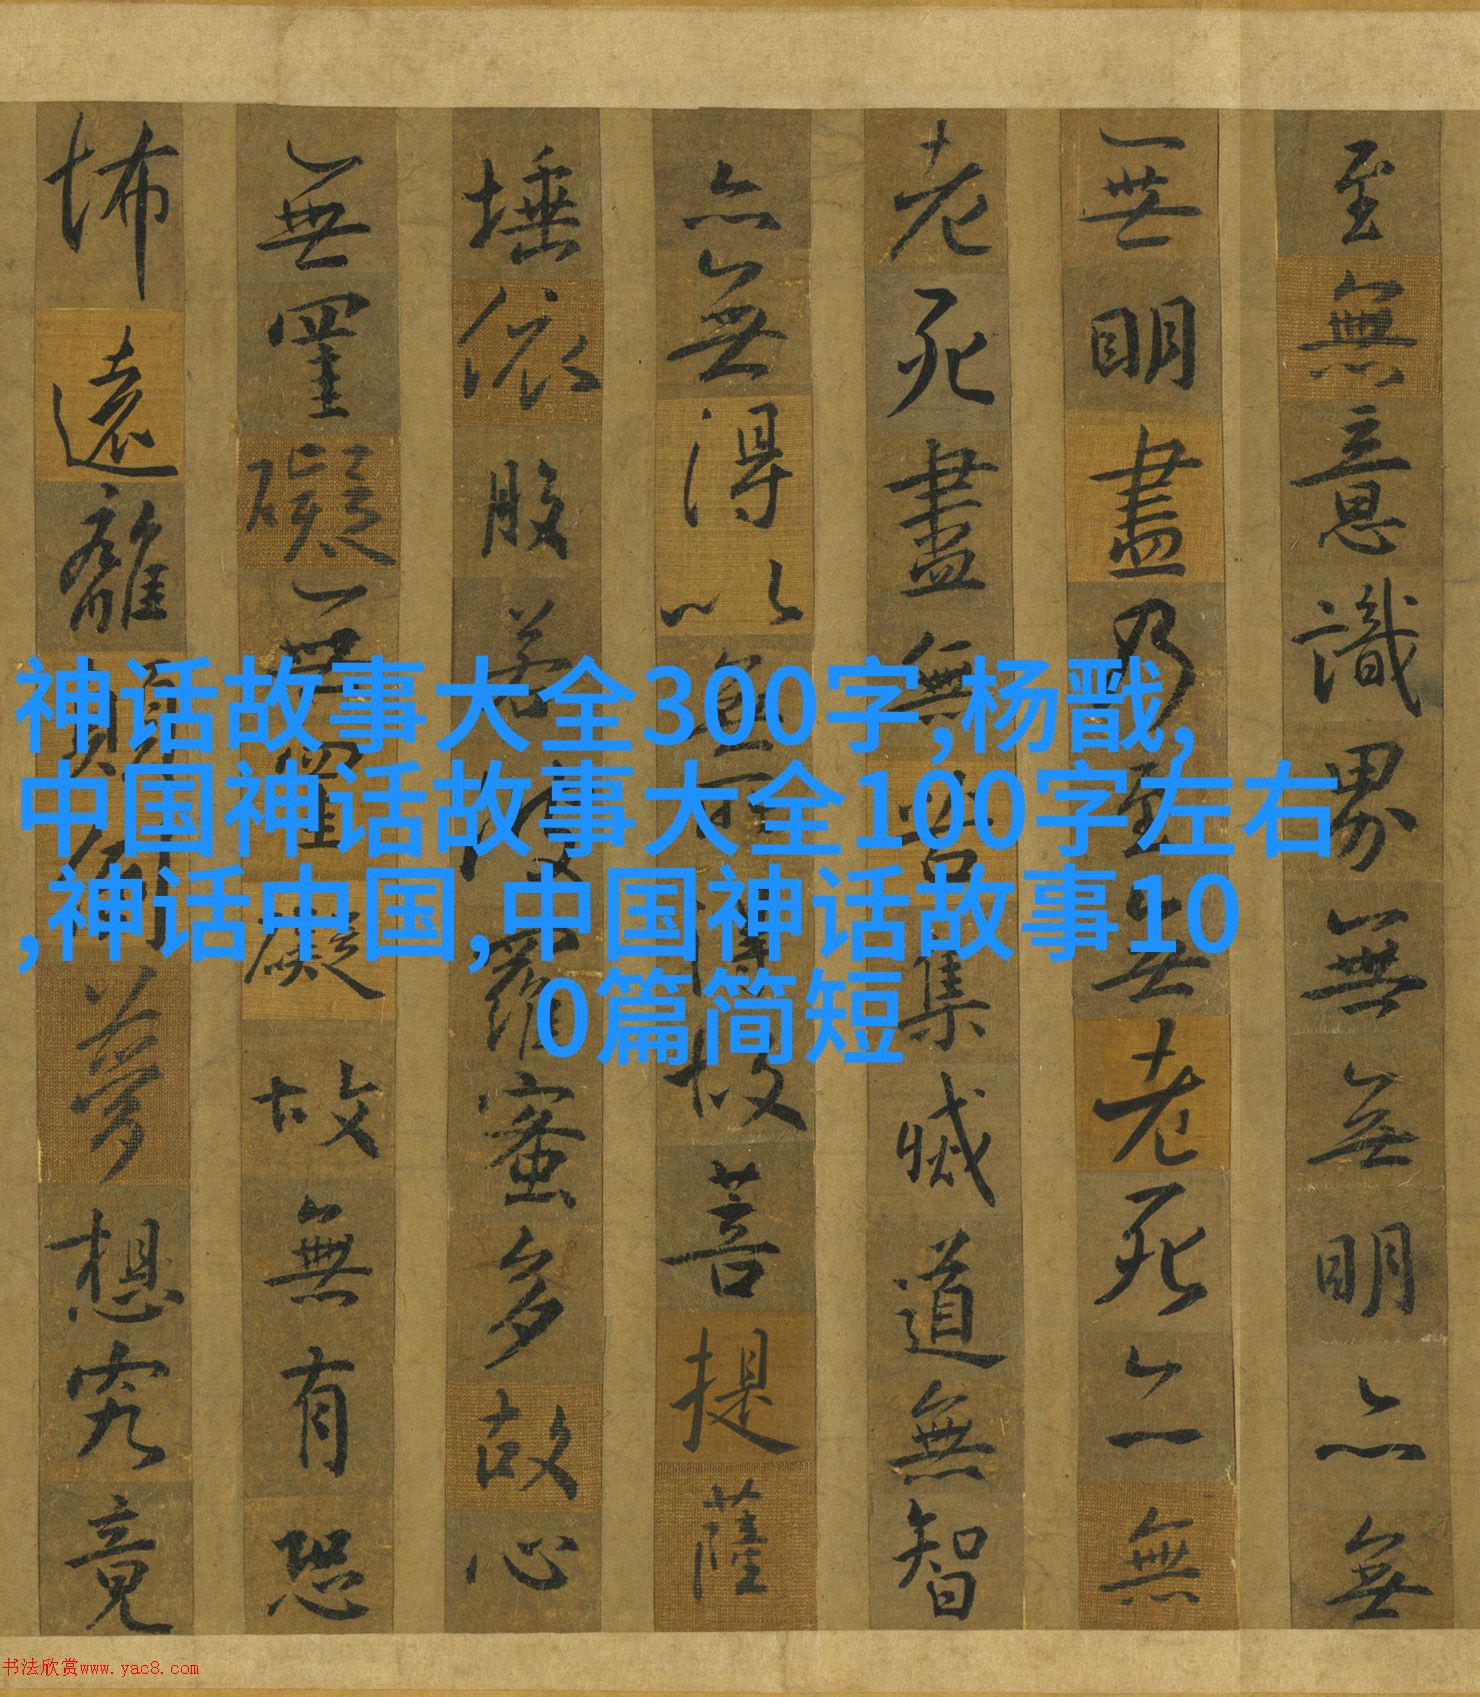 至無意識界無無明亦無
無明盡乃至無老死亦無
老死盡無苦集滅道無智
亦無得以無所得故菩提薩
埵依般若波羅蜜多故心
無罣礙無罣礙故無有恐
怖遠離顛倒夢想究竟
神话故事大全300字,杨戬,
中国神话故事大全100字左右
,神话中国,中国神话故事10
0篇简短
书法欣赏www.yac8.com